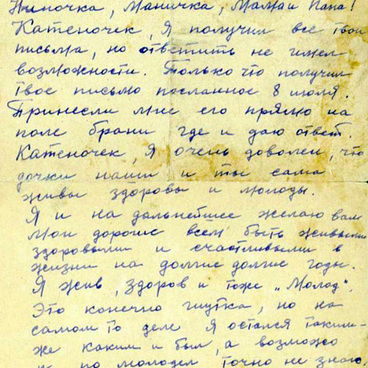 Ниночка, Маничка, Мама и Папа!
Катеночек, я получил все твои
письма, но ответить не имел
возможности. Только что получил
твое письмо посланное 8 июля.
Принесли мне его прямо на
поле брани где и даю ответ.
Катеночек, я очень доволен, что
дочки наши и ты сама
живы здоровы и молоды.
Я и на дальнейшее желаю вам
мои дорогие всем быть живыми
здоровыми и счастливыми в
жизни на долгие долгие годы.
Я жив, здоров и тоже „Молод".
Это конечно шутка, но на
самом то деле я остался таким-
же каким и был, а возможно
и по молодел точно не знаю.